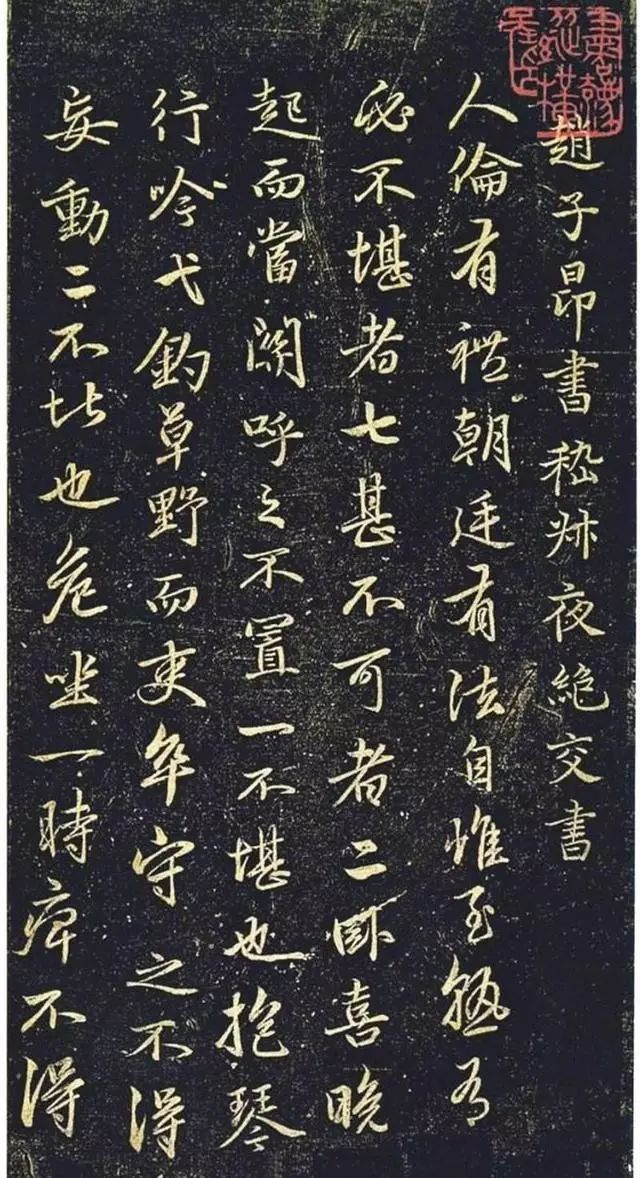 趙子昂書嵇叔夜絶交書
人倫有禮朝廷有法自惟至熟有
必不堪者七甚不可者二卧喜晚
起而當關呼之不置一不堪也抱琴
行吟弋釣草野而吏卒守之不得
妄動二不堪也危坐一時痹不得